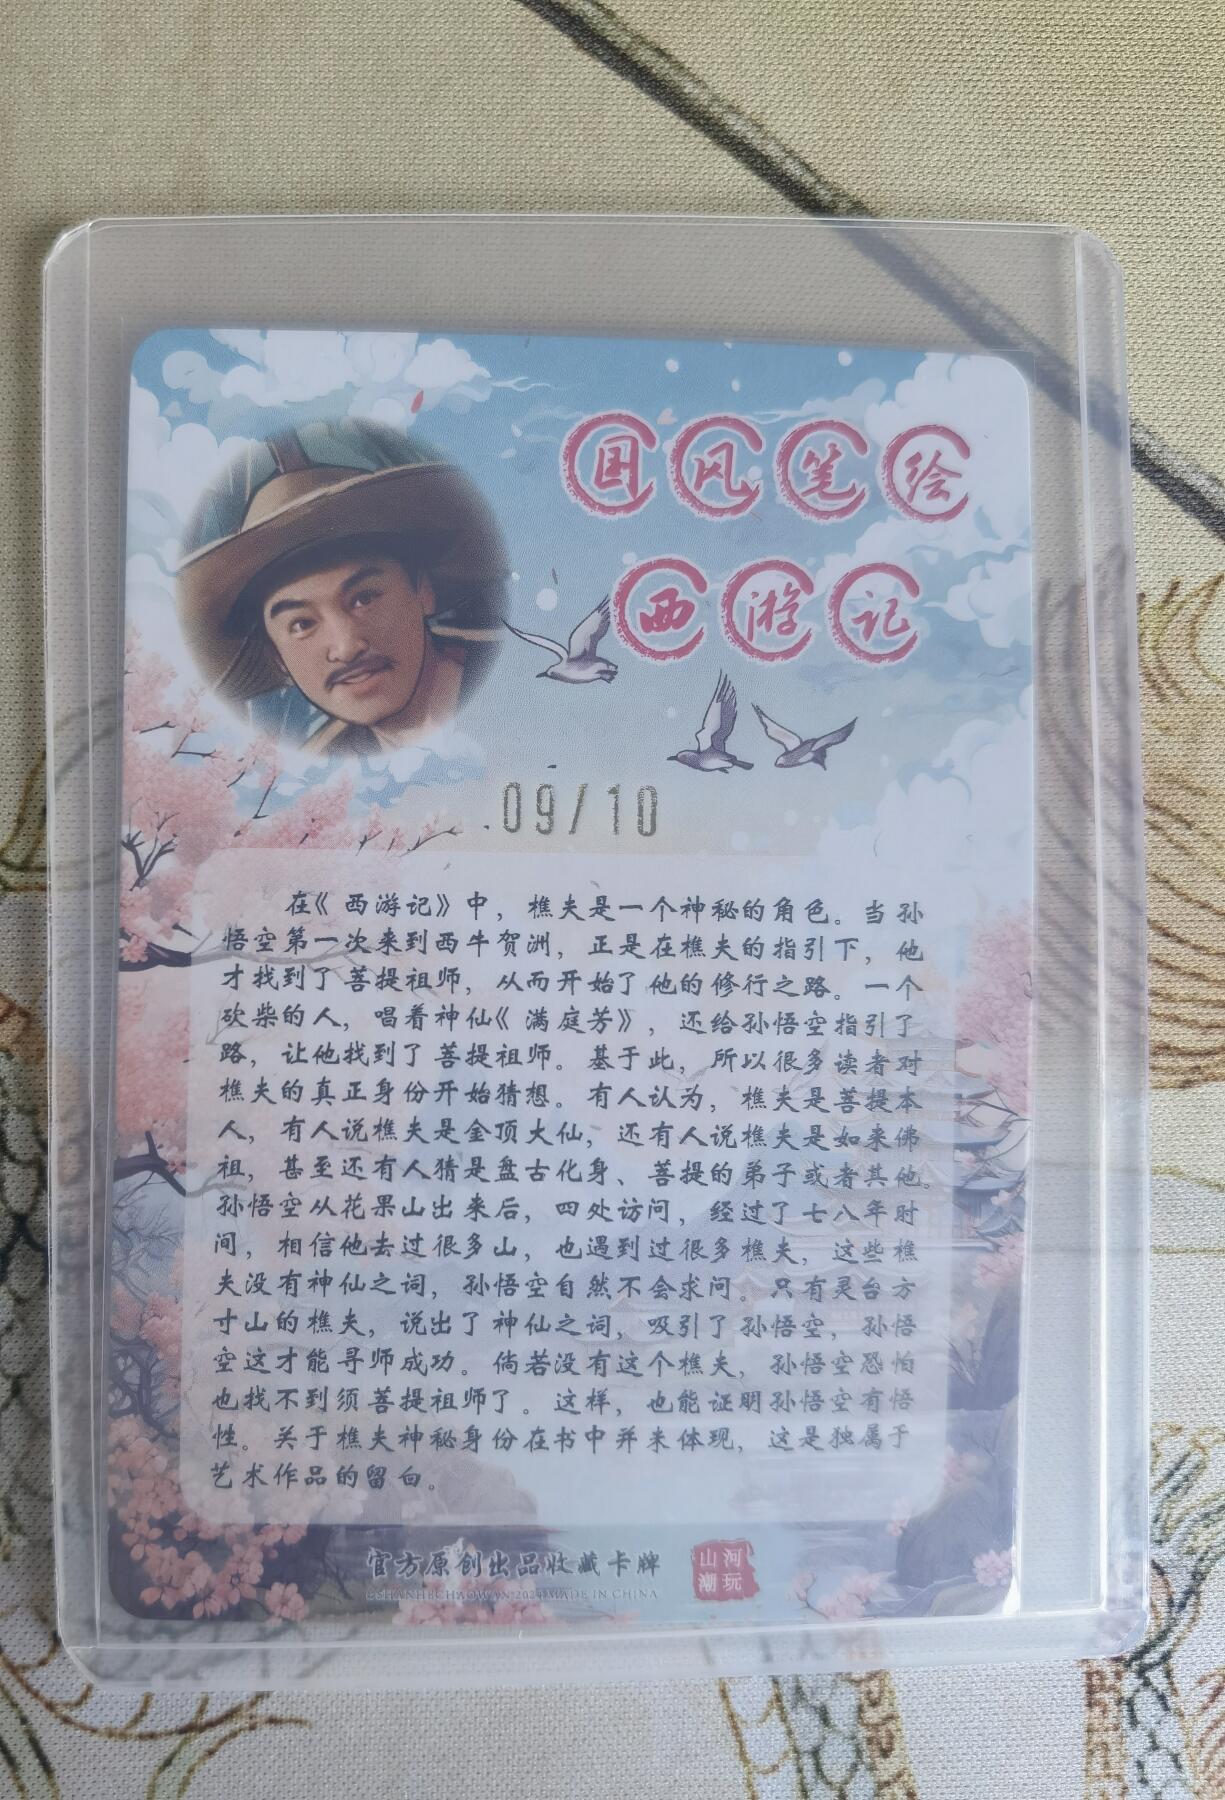 国风笔绘
西游记
09/10
在《西游记》中，樵夫是一个神秘的角色。当孙
悟空第一次来到西牛贺洲，正是在樵夫的指引下，他
才找到了菩提祖师，从而开始了他的修行之路。一个
砍柴的人，唱着神仙《满庭芳》，还给孙悟空指引了
路，让他找到了菩提祖师。基于此，所以很多读者对
樵夫的真正身份开始猜想。有人认为，樵夫是菩提本
人，有人说樵夫是金顶大仙，还有人说樵夫是如来佛
祖，甚至还有人猜是盘古化身、菩提的弟子或者其他。
孙悟空从花果山出来后，四处访问，经过了七八年时
间，相信他去过很多山，也遇到过很多樵夫，这些樵
夫没有神仙之词，孙悟空自然不会求问。只有灵台方
寸山的樵夫，说出了神仙之词，吸引了孙悟空，孙悟
空这才能寻师成功。倘若没有这个樵夫，孙悟空恐怕
也找不到须菩提祖师了。这样，也能证明孙悟空有悟
性。关于樵夫神秘身份在书中并未体现，这是独属于
艺术作品的留白。
官方原创出品收藏卡牌
©SHANHECHAOWAN 2024 MADE IN CHINA
山河
潮玩